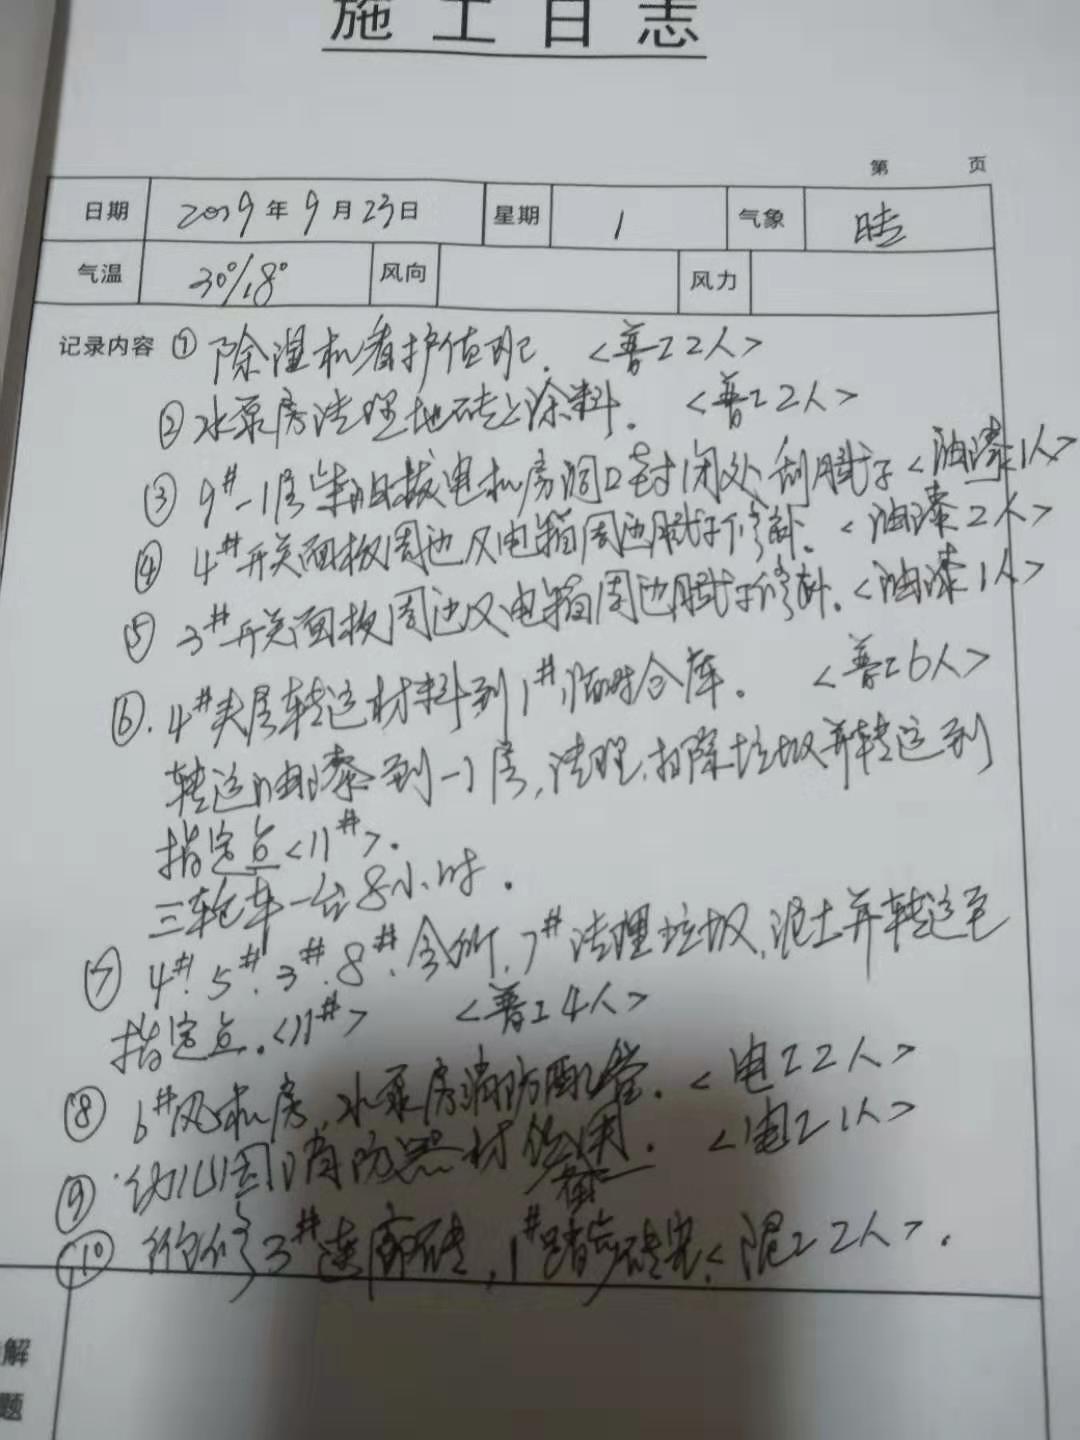 施工日志
第 页
日期 2019年9月23日 星期 1 气象 晴
气温 30°/18° 风向 风力
记录内容 ① 除湿机看护值班. <普工2人>
② 水泵房清理地砖上涂料. <普工2人>
③ 9#-1层柴油发电机房洞口封闭处刮腻子<油漆1人>
④ 4#开关面板周边及电箱周边腻子修补. <油漆2人>
⑤ 3#开关面板周边及电箱周边腻子修补. <油漆1人>
⑥. 4#夹层转运材料到1#临时仓库. <普工6人>
转运油漆到-1层, 清理.扫除垃圾并转运到
指定点<11#>.
三轮车一台8小时.
⑦ 4#.5#.3#.8#.会所.7#清理垃圾.泥土并转运至
指定点.<11#> <普工4人>
⑧ 6#风机房.水泵房消防配管. <电工2人>
⑨ 幼儿园消防器材 <电工1人>
⑩ 修3#连廊砖, 1#踏步砖 <泥工2人>.
解
题